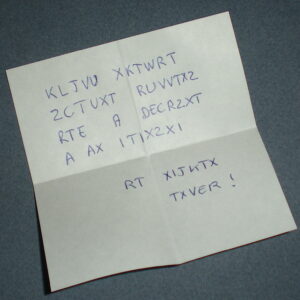 KLJVU XKTWRT
2CTUXT RUVVTX2
RTE A DECR2XT
A AX ITIX2XI
RT XIJUTX
TXVER !